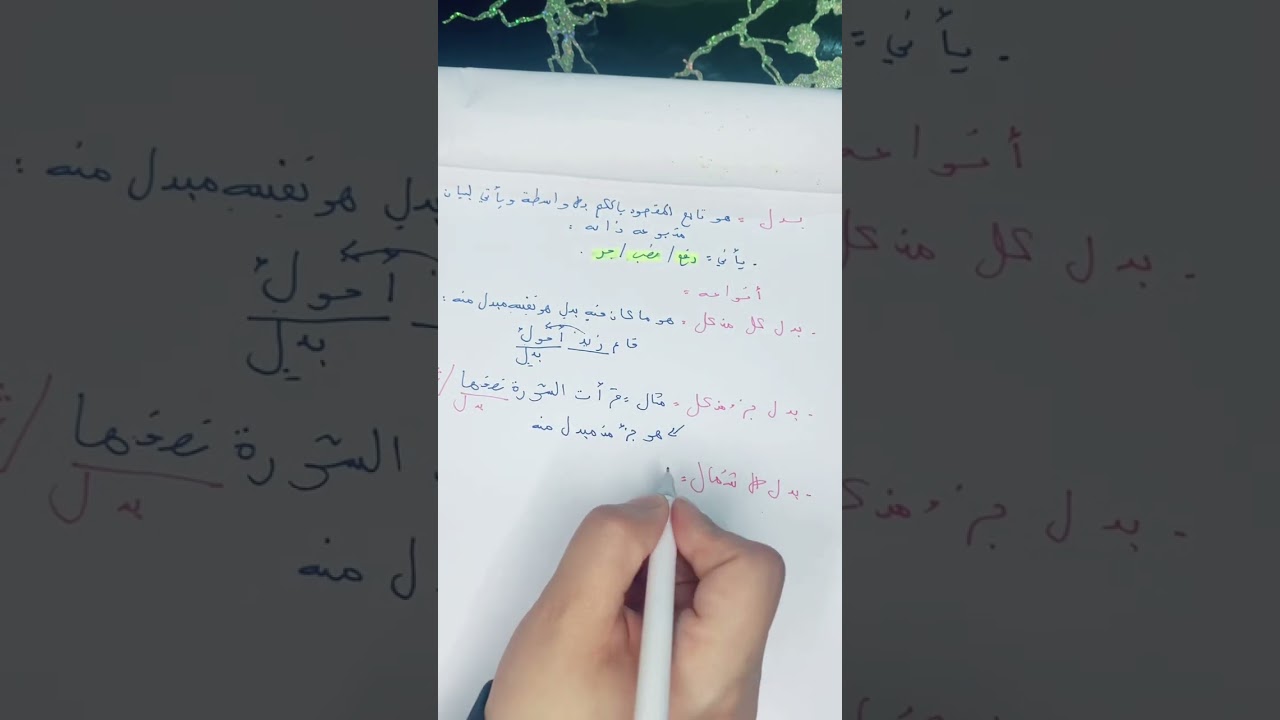 بدل = هو تابع المقصود بالحكم بلا واسطة ويأتي لبيان
متبوعه ذاته :
- يأتي = رفع / نصب / جر .
أنواعه =
- بدل كل من كل = هو ما كان فيه بدل هو نفسه مبدل منه :
قام زيد أخوك
بدل
- بدل جزء من كل = مثال = قرأت السورة نصفها /
بدل
هو جزء من مبدل منه
- بدل اشتمال =